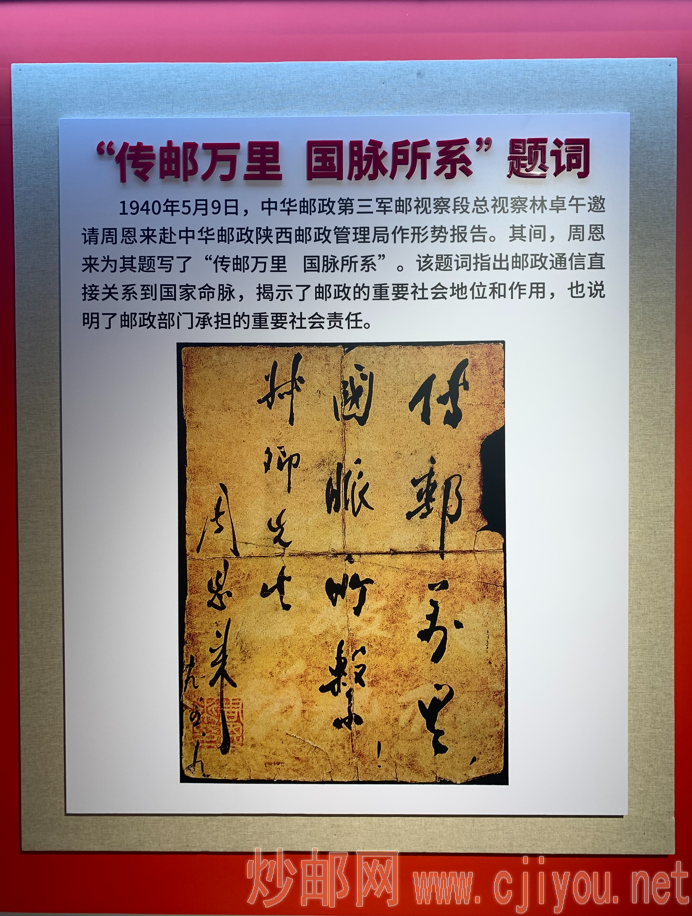 “传邮万里 国脉所系”题词
1940年5月9日，中华邮政第三军邮视察段总视察林卓午邀
请周恩来赴中华邮政陕西邮政管理局作形势报告。其间，周恩
来为其题写了“传邮万里 国脉所系”。该题词指出邮政通信直
接关系到国家命脉，揭示了邮政的重要社会地位和作用，也说
明了邮政部门承担的重要社会责任。
傳郵万里，
國脈所繫！
卓卿先生
周恩来
炒邮网 www.cjiyou.net